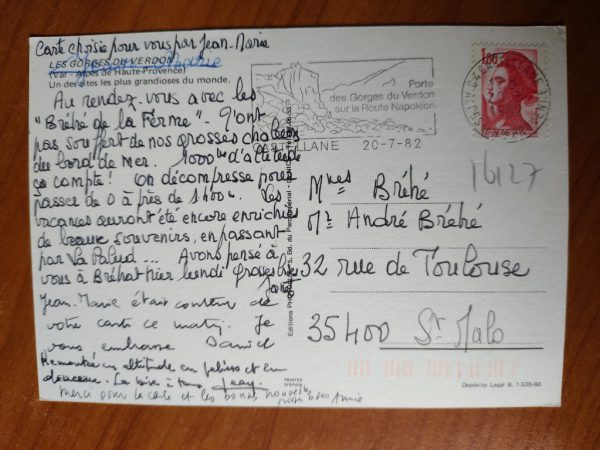 Carte choisie pour vous par Jean-Marie
LES GORGES DU VERDON
(Var - Alpes de Haute-Provence)
Un des sites les plus grandioses du monde.
Au rendez-vous avec les
"Bréhé de la Ferme".
pas souffert de nos grosses chaleurs
du bord de Mer. 1000m d'altitude
ça compte! On décompresse pour
passer de 0 à près de 1400m. Les
vacances auront été encore enrichies
de beaux souvenirs, en passant
par La Palud... Avons pensé à
vous à Bréhat hier lundi Grosses bises
Jean-Marie était content de
votre carte ce matin. Je
vous embrasse Daniel
Remontée en altitude en
douceur.
merci pour la carte et les bonnes nouvelles
Annie
1,80
Porte
des Gorges du Verdon
sur la Route Napoléon
CASTELLANE 20-7-82
16127
Mmes Bréhé
Mr André Bréhé
32 rue de Toulouse
35400 St Malo
PRINTED
Dépôt Légal B. 1.535-80